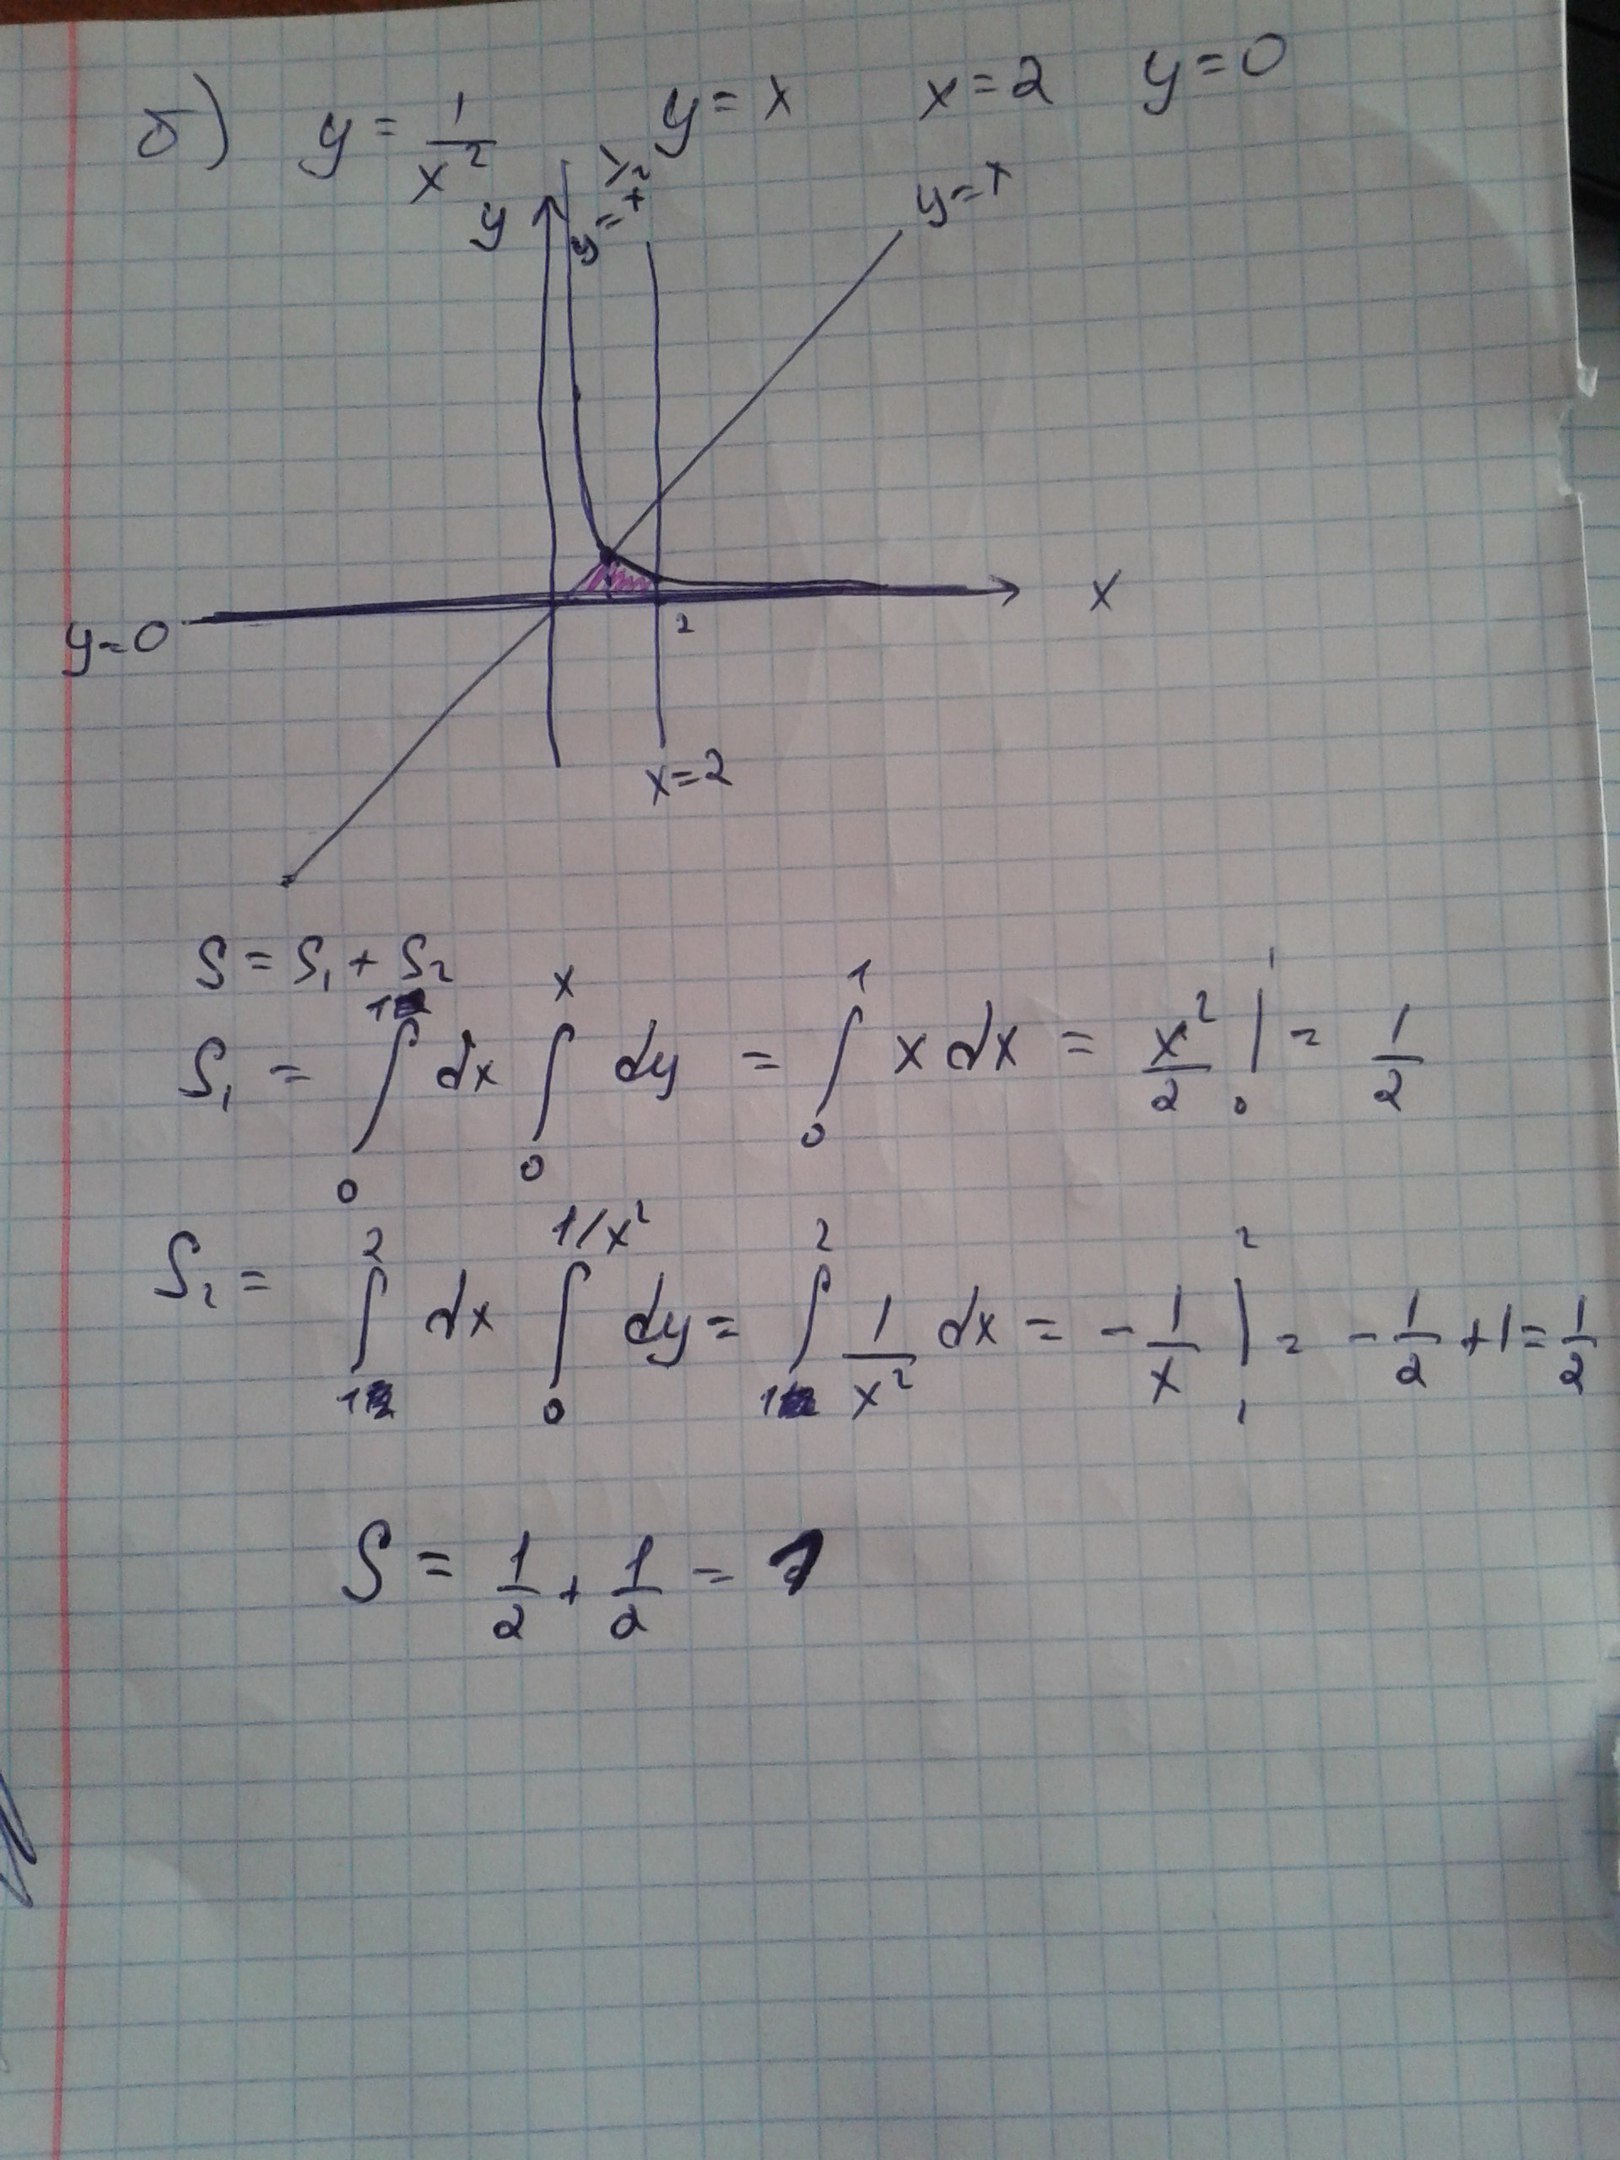 б) y = 1/x² y = x x = 2 y = 0
y
y = 1/x²
y = x
x
y = 0
2
x = 2
S = S₁ + S₂
S₁ = ∫₀¹ dx ∫₀ˣ dy = ∫₀¹ x dx = x²/2 |₀¹ = 1/2
S₂ = ∫₁² dx ∫₀^(1/x²) dy = ∫₁² 1/x² dx = - 1/x |₁² = - 1/2 + 1 = 1/2
S = 1/2 + 1/2 = 1